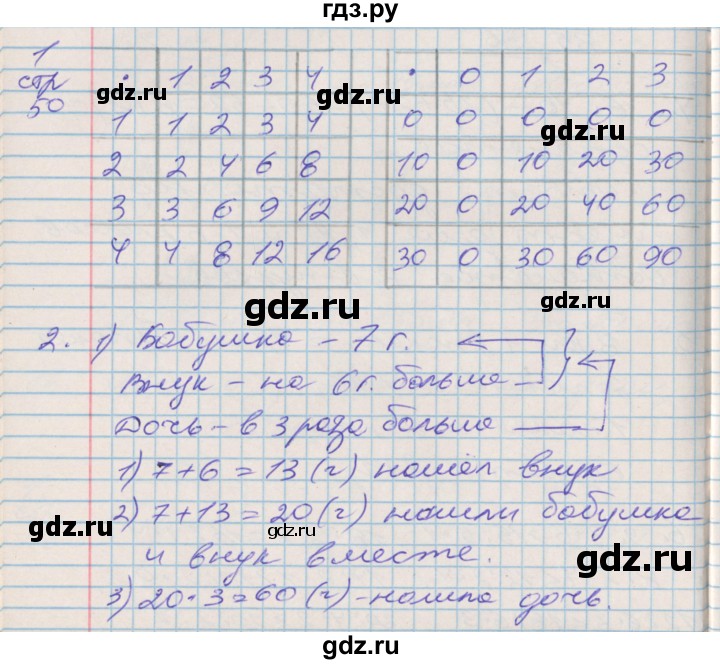 гдз.ру
1
стр
50
• 1 2 3 4
1 1 2 3 4
2 2 4 6 8
3 3 6 9 12
4 4 8 12 16
• 0 1 2 3
0 0 0 0 0
10 0 10 20 30
20 0 20 40 60
30 0 30 60 90
gdz.ru
gdz.ru
gdz.ru
gdz.ru
2. 1) Бабушка - 7 г.
Внук - на 6 г. больше
Дочь - в 3 раза больше
1) 7 + 6 = 13 (г) нашёл внук
2) 7 + 13 = 20 (г) нашли бабушка
и внук вместе.
3) 20 · 3 = 60 (г) - нашла дочь.
gdz.ru
gdz.ru
gdz.ru
gdz.ru